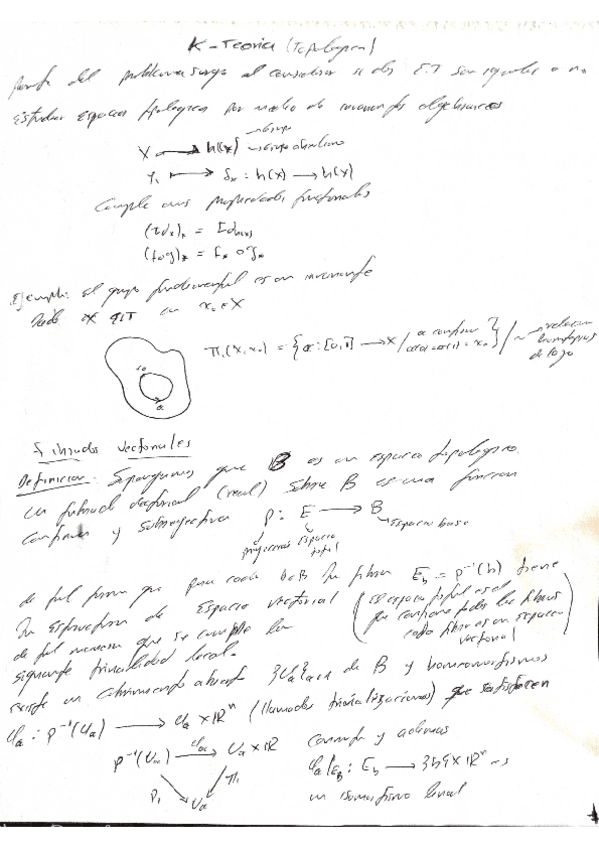 K-Teoria (Topologica)
del problema surge al considerar si dos E.T son iguales o no
estudiar espacios topologicos por medio de invariantes algebraicos
X ⟼ h(x) → Grupo → Grupo abeliano
f ⟼ f* : h(x) → h(y)
Cumple unas propiedades functoriales
(Id_x)* = Id_h(x)
(f∘g)* = f* ∘ g*
Ejemplo: el grupo fundamental es un invariante
Dado X EIT con x₀ ∈ X
π₁(X, x₀) = {α : [0,1] → X / α continua α(0)=α(1)=x₀} / ~ → relacion homotopias de lazo
x₀
α
Fibrados vectoriales
Definicion: Supongamos que B es un espacio topologico.
Un fibrado vectorial (real) sobre B es una funcion
continua y sobreyectiva p : E → B → espacio base
proyeccion espacio total
de tal forma que para cada b∈B la fibra E_b = p⁻¹(b) tiene
la estructura de espacio vectorial (el espacio total es el
que contiene todas las fibras
cada fibra es un espacio
vectorial)
de tal manera que se cumple la
siguiente trivialidad local.
existe un cubrimiento abierto {U_α}_α∈Λ de B y homeomorfismos
φ_α : p⁻¹(U_α) → U_α × ℝⁿ (llamados trivializaciones) que satisfacen
p⁻¹(U_α) —φ_α→ U_α × ℝ conmuta y ademas
φ_α|E_b : E_b → {b} × ℝⁿ es
p₁ ↘ U_α ↙ π₁ un isomorfismo lineal